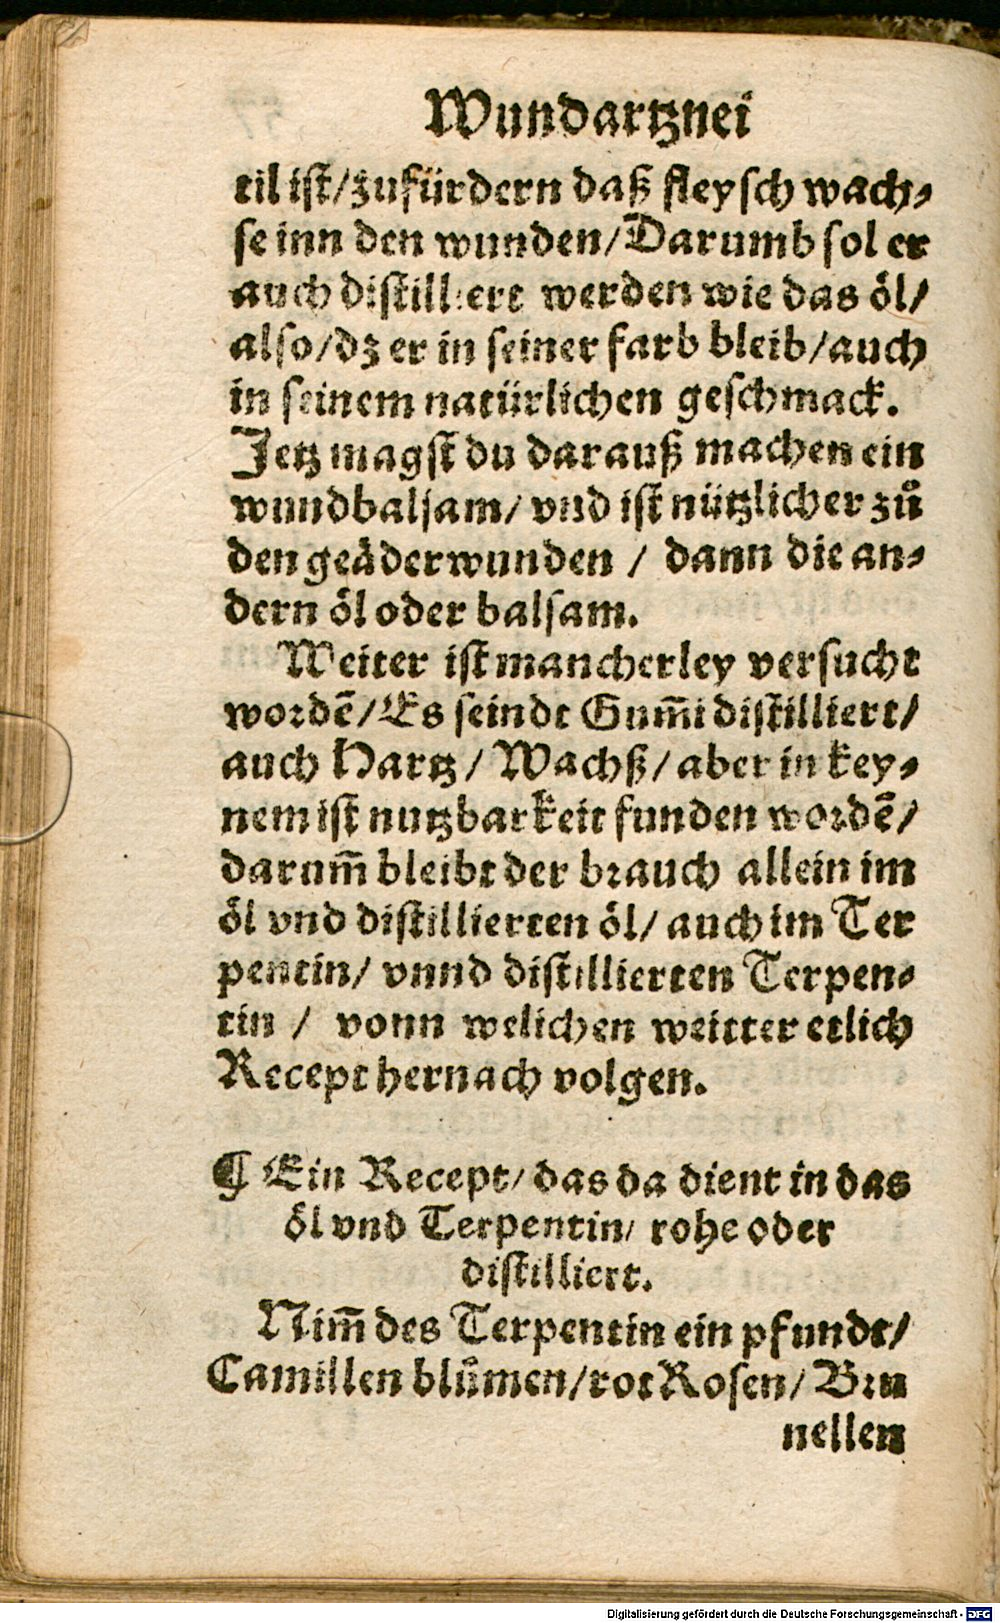 Wundartznei
til iſt/zufürdern daß fleyſch wach⸗
ſe inn den wunden/Darumb ſol er
auch diſtilliert werden wie das öl/
alſo/dz er in ſeiner farb bleib/auch
in ſeinem natürlichen geſchmack.
Jetz magſt du darauß machen ein
wundbalſam/ vnd iſt nützlicher zuͦ
den geäderwunden / dann die an⸗
dern öl oder balſam.
Weiter iſt mancherley verſucht
wordē/Es ſeindt Gum̄i diſtilliert/
auch Hartz/ Wachß/ aber in key⸗
nem iſt nutzbarkeit funden wordē/
darum̄ bleibt der brauch allein im
öl vnd diſtillierten öl/ auch im Ter
pentin/ vnnd diſtillierten Terpen⸗
tin / vonn welichen weitter etlich
Recept hernach volgen.
¶ Ein Recept/ das da dient in das
öl vnd Terpentin/ rohe oder
diſtilliert.
Nim̄ des Terpentin ein pfundt/
Camillen bluͦmen/rot Roſen/ Bru
nellen
Digitalisierung gefördert durch die Deutsche Forschungsgemeinschaft - DFG